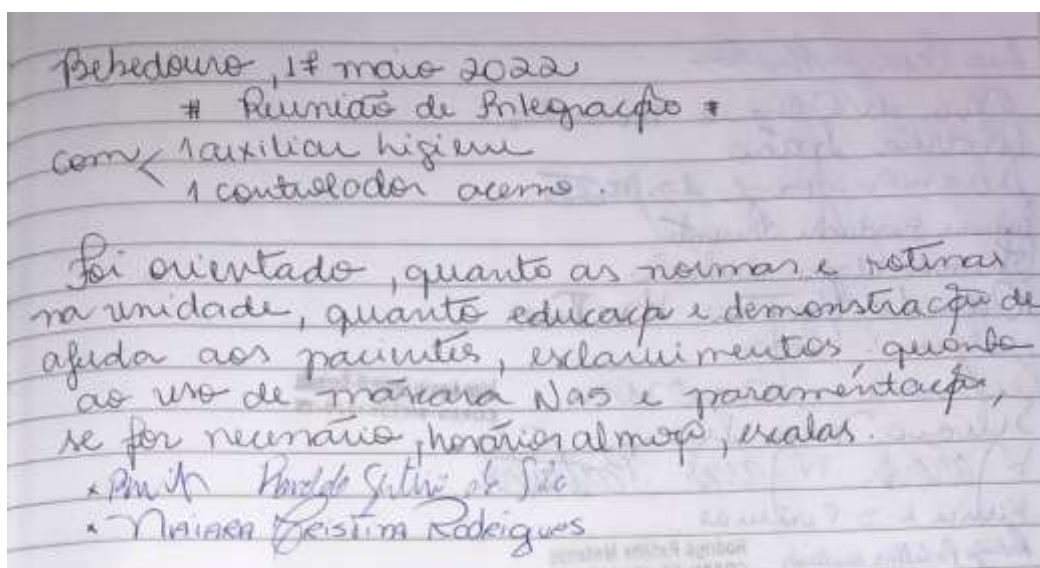 Bebedouro, 17 maio 2022
* Reunião de Integração *
com < 1 auxiliar higiene
1 controlador acesso.
Foi orientado, quanto as normas e rotinas
na unidade, quanto educação e demonstração de
ajuda aos pacientes, esclarecimentos quanto
ao uso de máscara N95 e paramentação,
se for necessário, horários almoço, escalas.
* Silva
* Naiara Cristina Rodrigues